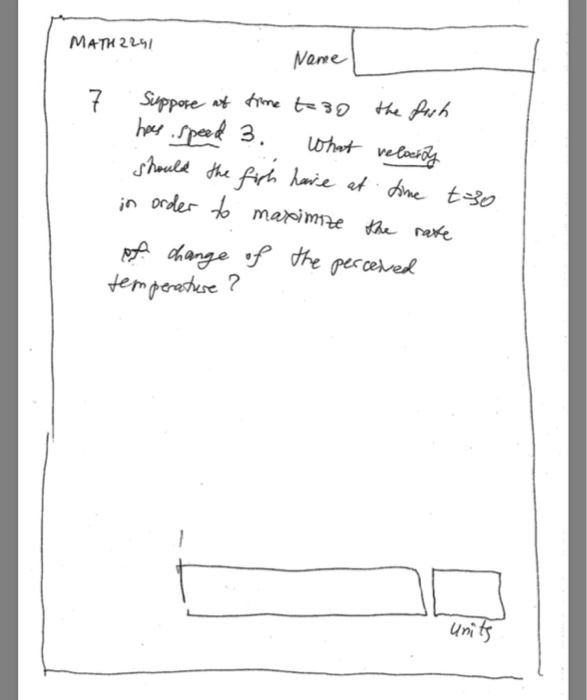 MATH 2241
Name
7 Suppose at time t=30 the fish
has speed 3. What velocity
should the fish have at time t=30
in order to maximize the rate
of change of the perceived
temperature?
units